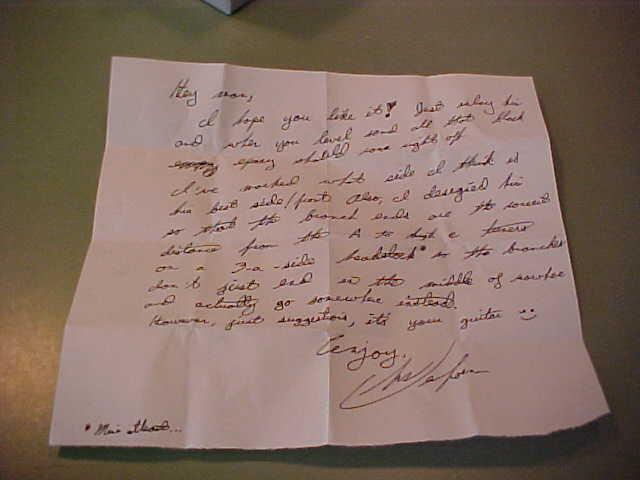 Hey man,
I hope you like it! Just inlay him
and when you level sand all that black
epoxy should come right off.
I've marked what side I think is
his best side/front. Also, I designed him
so that the branch ends are the correct
distance from the A to high e tuners
on a 3-a-side headstock* so the branches
don't just end in the middle of nowhere
and actually go somewhere instead.
However, just suggestions, it's your guitar :)
Enjoy,
* Mine atleast...